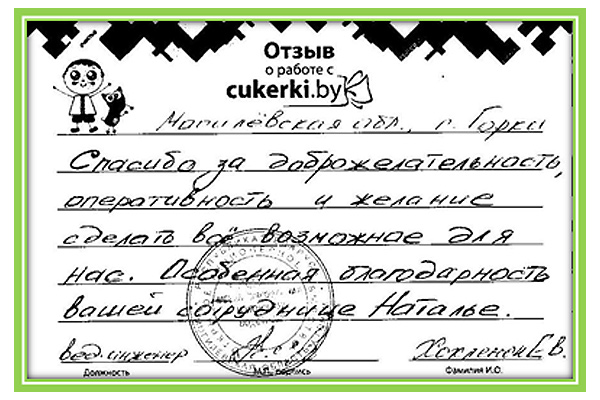 Отзыв
о работе с
cukerki.by
Могилёвская обл., г. Горки
Спасибо за доброжелательность,
оперативность и желание
сделать всё возможное для
нас. Особенная благодарность
вашей сотруднице Наталье.
вед. инженер
Должность
М.П., подпись
Фамилия И.О.